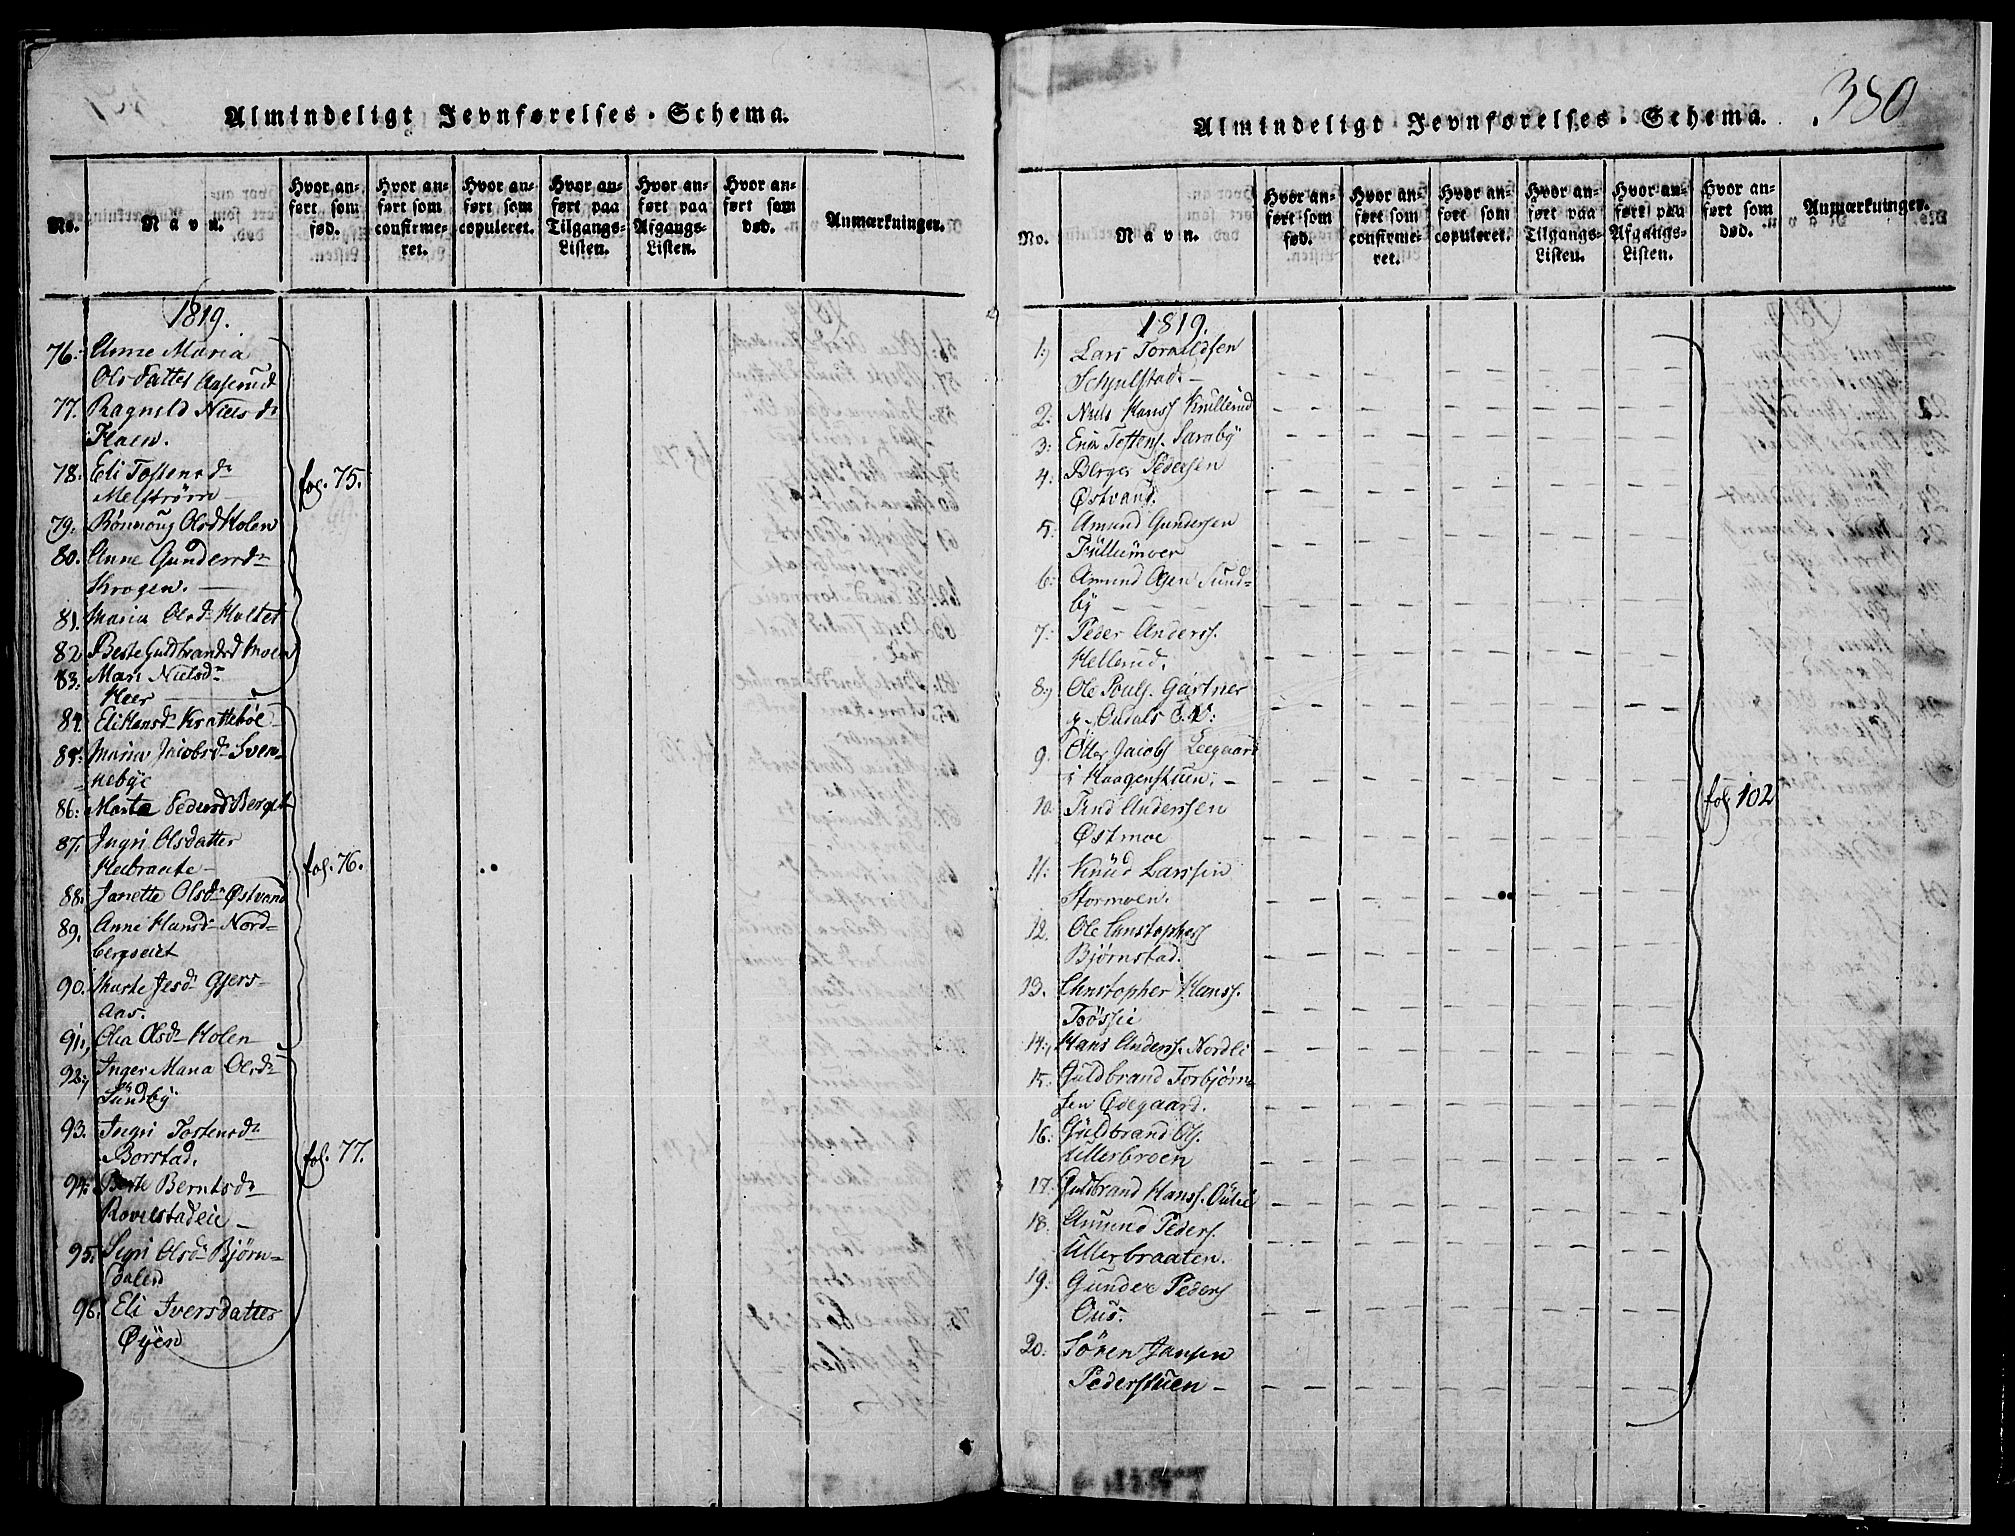 Almindeligt Jevnførelses-Schema.
No.
Navn.
Hvor an-
ført som
fød.
Hvor an-
ført som
confirme-
ret.
Hvor an-
ført som
copuleret.
Hvor an-
ført paa
Tilgangs-
Listen.
Hvor an-
ført paa
Afgangs-
Listen.
Hvor an-
ført som
død.
Anmærkninger.
1819.
76. Anne Maria
Olsdatter Aaserud
77. Ragnild Nielsdr
Floen.
78. Eli Tostensdr
Melstrøm
79. Rønnoug Olsd Holen
80. Anne Gundersdr
Krogen.
81. Maria Olsdr Holtet
82 Beste Guldbrandsd Moen
83. Mari Nielsdr
Heer
84. Eli Hansdr Krattebøe
85. Maria Jacobsdr Sven-
nebye
86. Marte Pedersd Berget
87. Ingri Olsdatter
88. Janette Olsdr Østvand
89. Anne Hansdr Nord-
bergseiet
90. Marte Jesdr Gjers-
Aas.
91. Olia Olsdr Holen
92. Inger Maria Olsdr
Sundby.
93. Ingri Tostensdr
Borstad.
94. Berte Berntsdr
Rovelstadeie
95. Sigri Olsdr Bjørn-
dalen
96. Eli Iversdatter
Øyen
fol. 75.
fol. 76.
fol. 77.
Almindeligt Jevnførelses-Schema.
380
No.
Navn.
Hvor an-
ført som
fød.
Hvor an-
ført som
confirme-
ret.
Hvor an-
ført som
copuleret.
Hvor an-
ført paa
Tilgangs-
Listen.
Hvor an-
ført paa
Afgangs-
Listen.
Hvor an-
ført som
død.
Anmærkninger.
1819.
1. Lars Torkildsen
Schjulstad.
2. Niels Hanss Knillerud
3. Erik Tostens. Saraby
4. Berger Pedersen
Østvand.
5. Amund Gundersen
Trullumoer
6. Amund Olsen Sund-
by
7. Peder Anderss.
Hellerud.
8. Ole Pouls. Gartner
9. Otter Jacobs Leegaard
i Haagenstuen.
10. Trud Anderssen
Østmoe
11. Knud Larssen
Stormoen.
12. Ole Christophers
Bjørnstad.
13. Christopher Hanss.
14. Hans Anderss. Nordli
15. Guldbrand Torbjørn-
sen Ødegaard.
16. Guldbrand Ols.
Ullerbroen
17. Guldbrand Hanss. Oulie
18. Amund Peders.
Ullerbraaten.
19. Gunder Peders
Ous.
20. Søren Jansen
Pederstuen
fol. 102